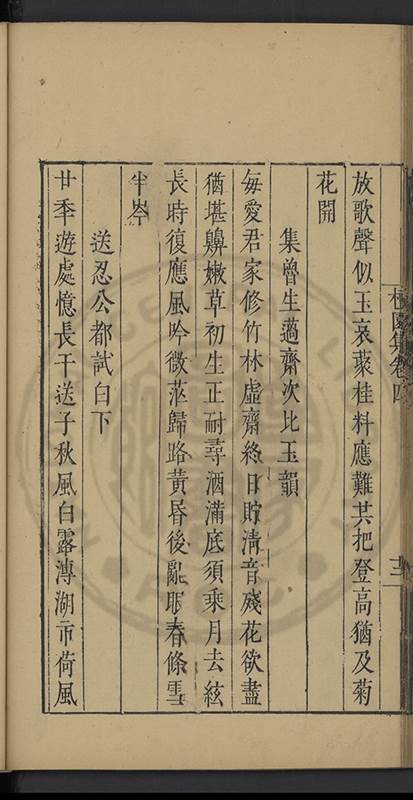 放歌聲似玉哀蒙桂料應難共把登高猶及菊
花開
集曾生薖齋次比玉韻
每愛君家修竹林虛齋終日貯清音殘花欲盡
猶堪齅嫩草初生正耐尋酒滿底須乘月去絃
長時復應風吟微茫歸路黃昏後亂眂春條雪
半岑
送忍公都試白下
廿季遊處憶長干送子秋風白露漙湖市荷風
集卷四